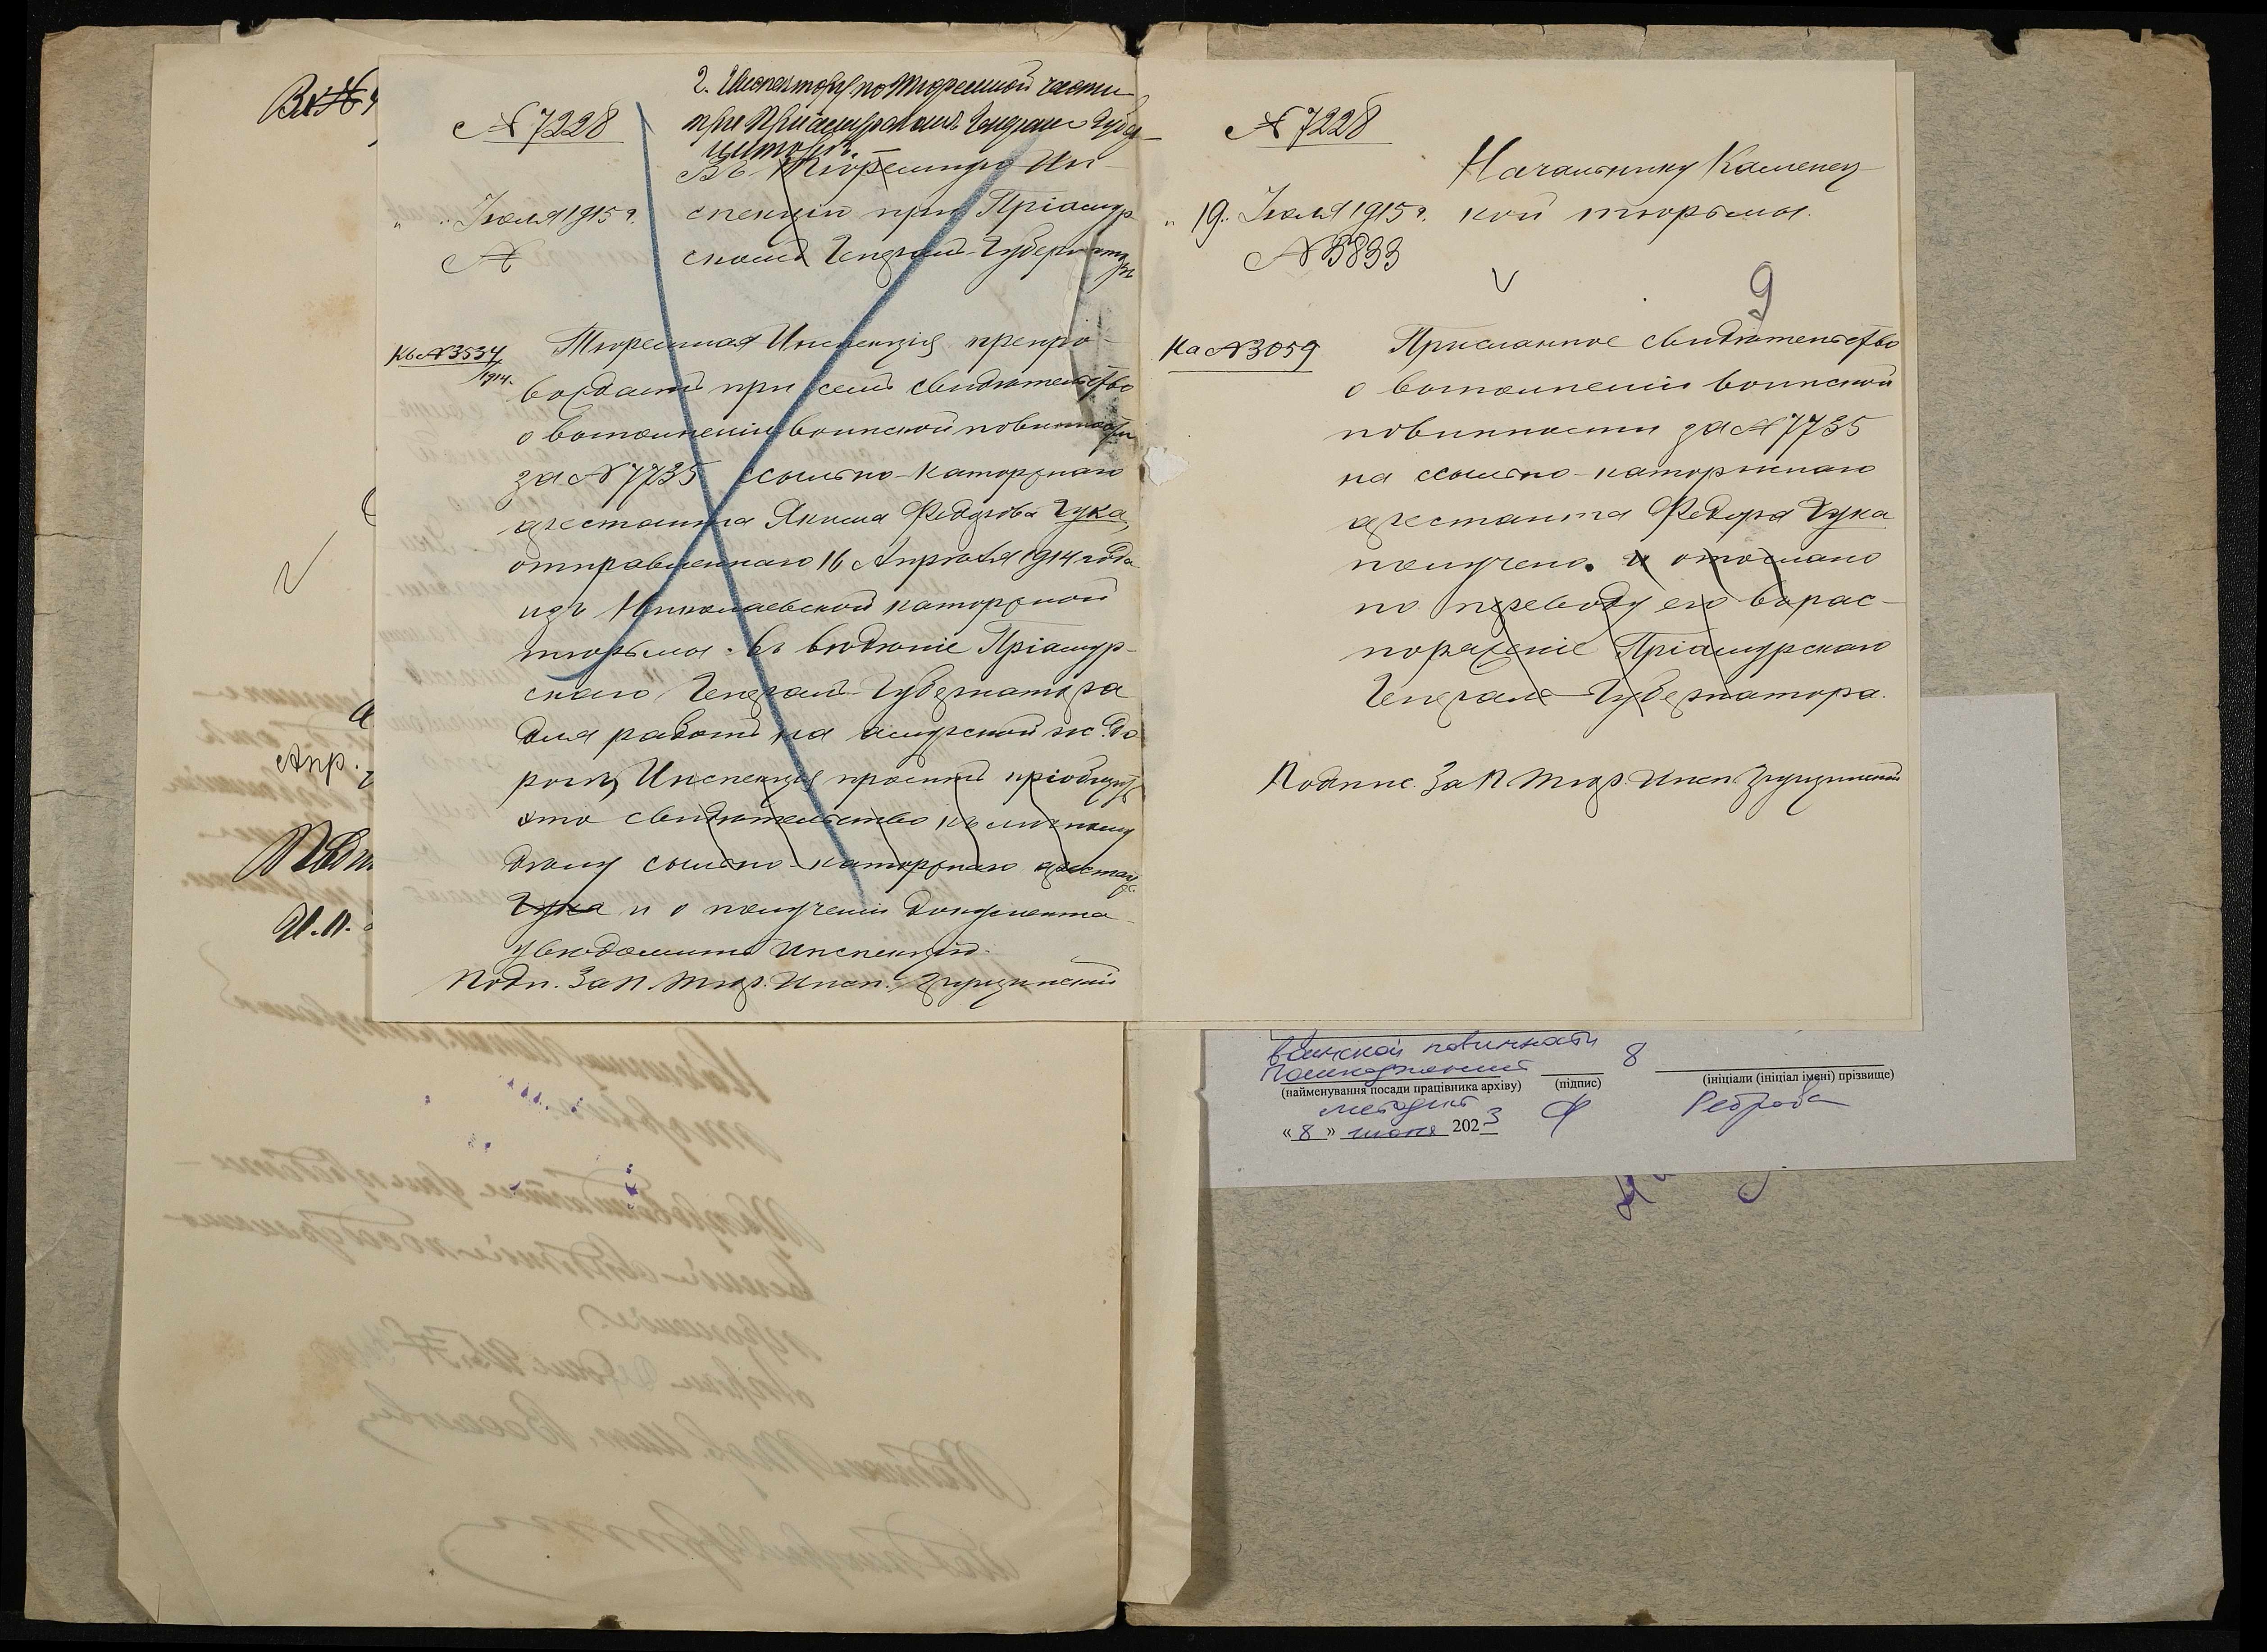 № 7228
2. Инспектору по Тюремной части
при Приамурском Генерал Губер-
наторе.
Въ Тюремную Ин-
спекцію при Пріамур
скомъ Генералъ-Губернаторе
" " Іюля 1915 г.
№
Къ № 3534/1914.
Тюремная Инспекція препро-
вождаетъ при семъ свидѣтельство
о выполненіи воинской повинности
за № 7735 ссыльно-каторжнаго
арестанта Якима Федорова Гука,
отправленнаго 16 Апрѣля 1914 года
изъ Николаевской каторжной
тюрьмы въ вѣдѣніе Пріамур-
скаго Генералъ-Губернатора
для работъ на амурской ж. до
рогѣ, Инспекція проситъ пріобщить
это свидѣтельство къ личному
дѣлу ссыльно-каторжнаго арестан
Гука и о полученіи документа
увѣдомить Инспекцію.
Подп. За П. Тюр. Инсп.
№ 7228
Начальнику Каменец-
кой тюрьмы.
" 19 " Іюля 1915 г.
№ 5833
9
На № 3059
Присланное свидѣтельство
о выполненіи воинской
повинности за № 7735
на ссыльно-каторжнаго
арестанта Федора Гука
получено. и отослано
по переводу его въ рас-
поряженіе Пріамурскаго
Генералъ-Губернатора.
Подпис. За П Тюр. Инсп.
Апр.
И.П.
воинской повинности
8
(найменування посади працівника архіву) (підпис) (ініціали (ініціал імені) прізвище)
методист Реброва
« 8 » июня 2023